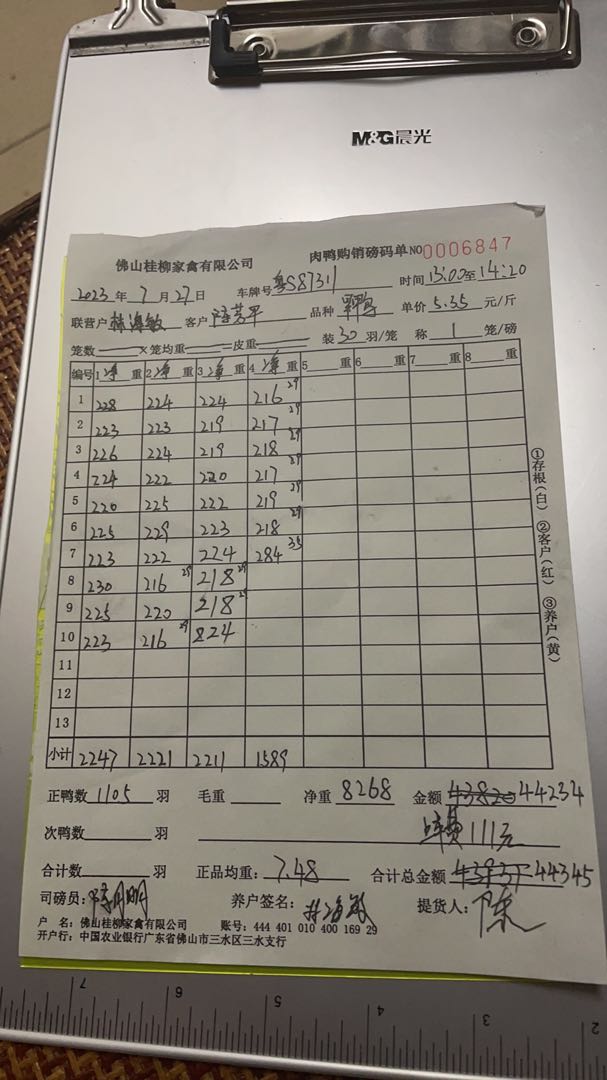 M&G晨光
佛山桂柳家禽有限公司 肉鸭购销磅码单 NO 0006847
2023年7月27日 车牌号 粤S87311 时间 13:00至14:20
联营户 林海敏 客户 品种 单价 5.35 元/斤
笼数 ×笼均重 =皮重 装30羽/笼 称1笼/磅
编号 1净重 2净重 3净重 4净重 5重 6重 7重 8重
1 228 224 224 216 29
2 223 223 219 217 29
3 226 224 219 218 29
4 224 222 220 217 29
5 220 225 222 219 29
6 225 229 223 218 29
7 223 222 224 284 35
8 230 216 29 218 29
9 225 220 218 29
10 223 216 29 224
11
12
13
小计 2247 2221 2211 1589
①存根(白) ②客户(红) ③养户(黄)
正鸭数 1105 羽 毛重 净重 8268 金额 43820 44234
次鸭数 羽 111元
合计数 羽 正品均重: 7.48 合计总金额 43931 44345
司磅员: 养户签名: 林海敏 提货人: 陈
户 名: 佛山桂柳家禽有限公司 账号: 444 401 010 400 169 29
开户行: 中国农业银行广东省佛山市三水区三水支行
7 6 5 4 3 2